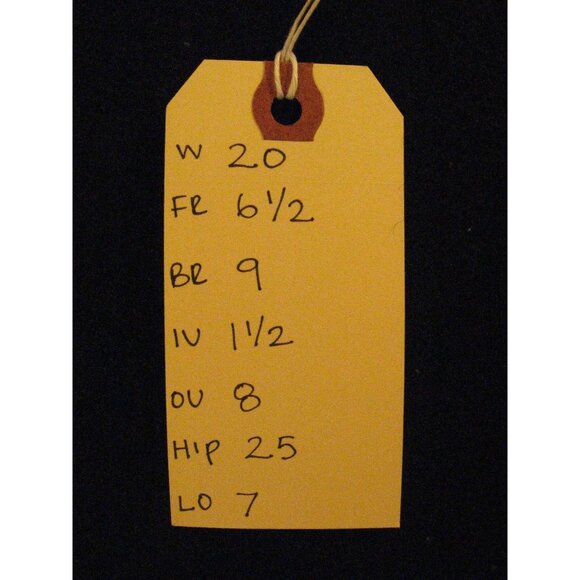 W 20
FR 6 1/2
BR 9
IU 1 1/2
OU 8
HIP 25
LO 7